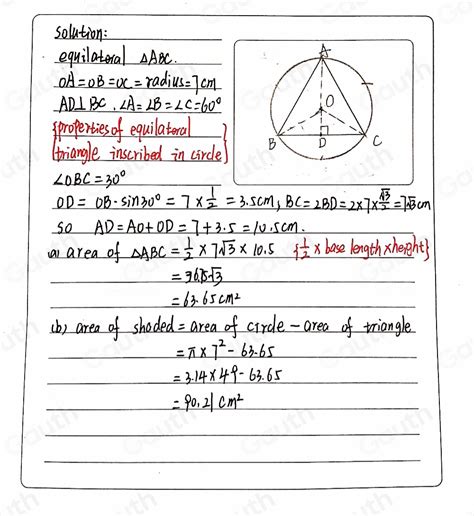 solution:
equilateral △ABC.
OA=OB=OC=radius=7cm
AD⊥BC. ∠A=∠B=∠C=60°
{properties of equilateral
triangle inscribed in circle}
∠OBC=30°
OD= OB·sin30° = 7×1/2 = 3.5cm, BC=2BD=2×7×√3/2=7√3cm
so AD=AO+OD=7+3.5=10.5cm.
(a) area of △ABC=1/2×7√3×10.5 {1/2×base length×height}
=36.75√3
=63.65cm²
(b) area of shaded=area of circle-area of triangle
=π×7²-63.65
=3.14×49-63.65
=90.21cm²
A
O
B D C